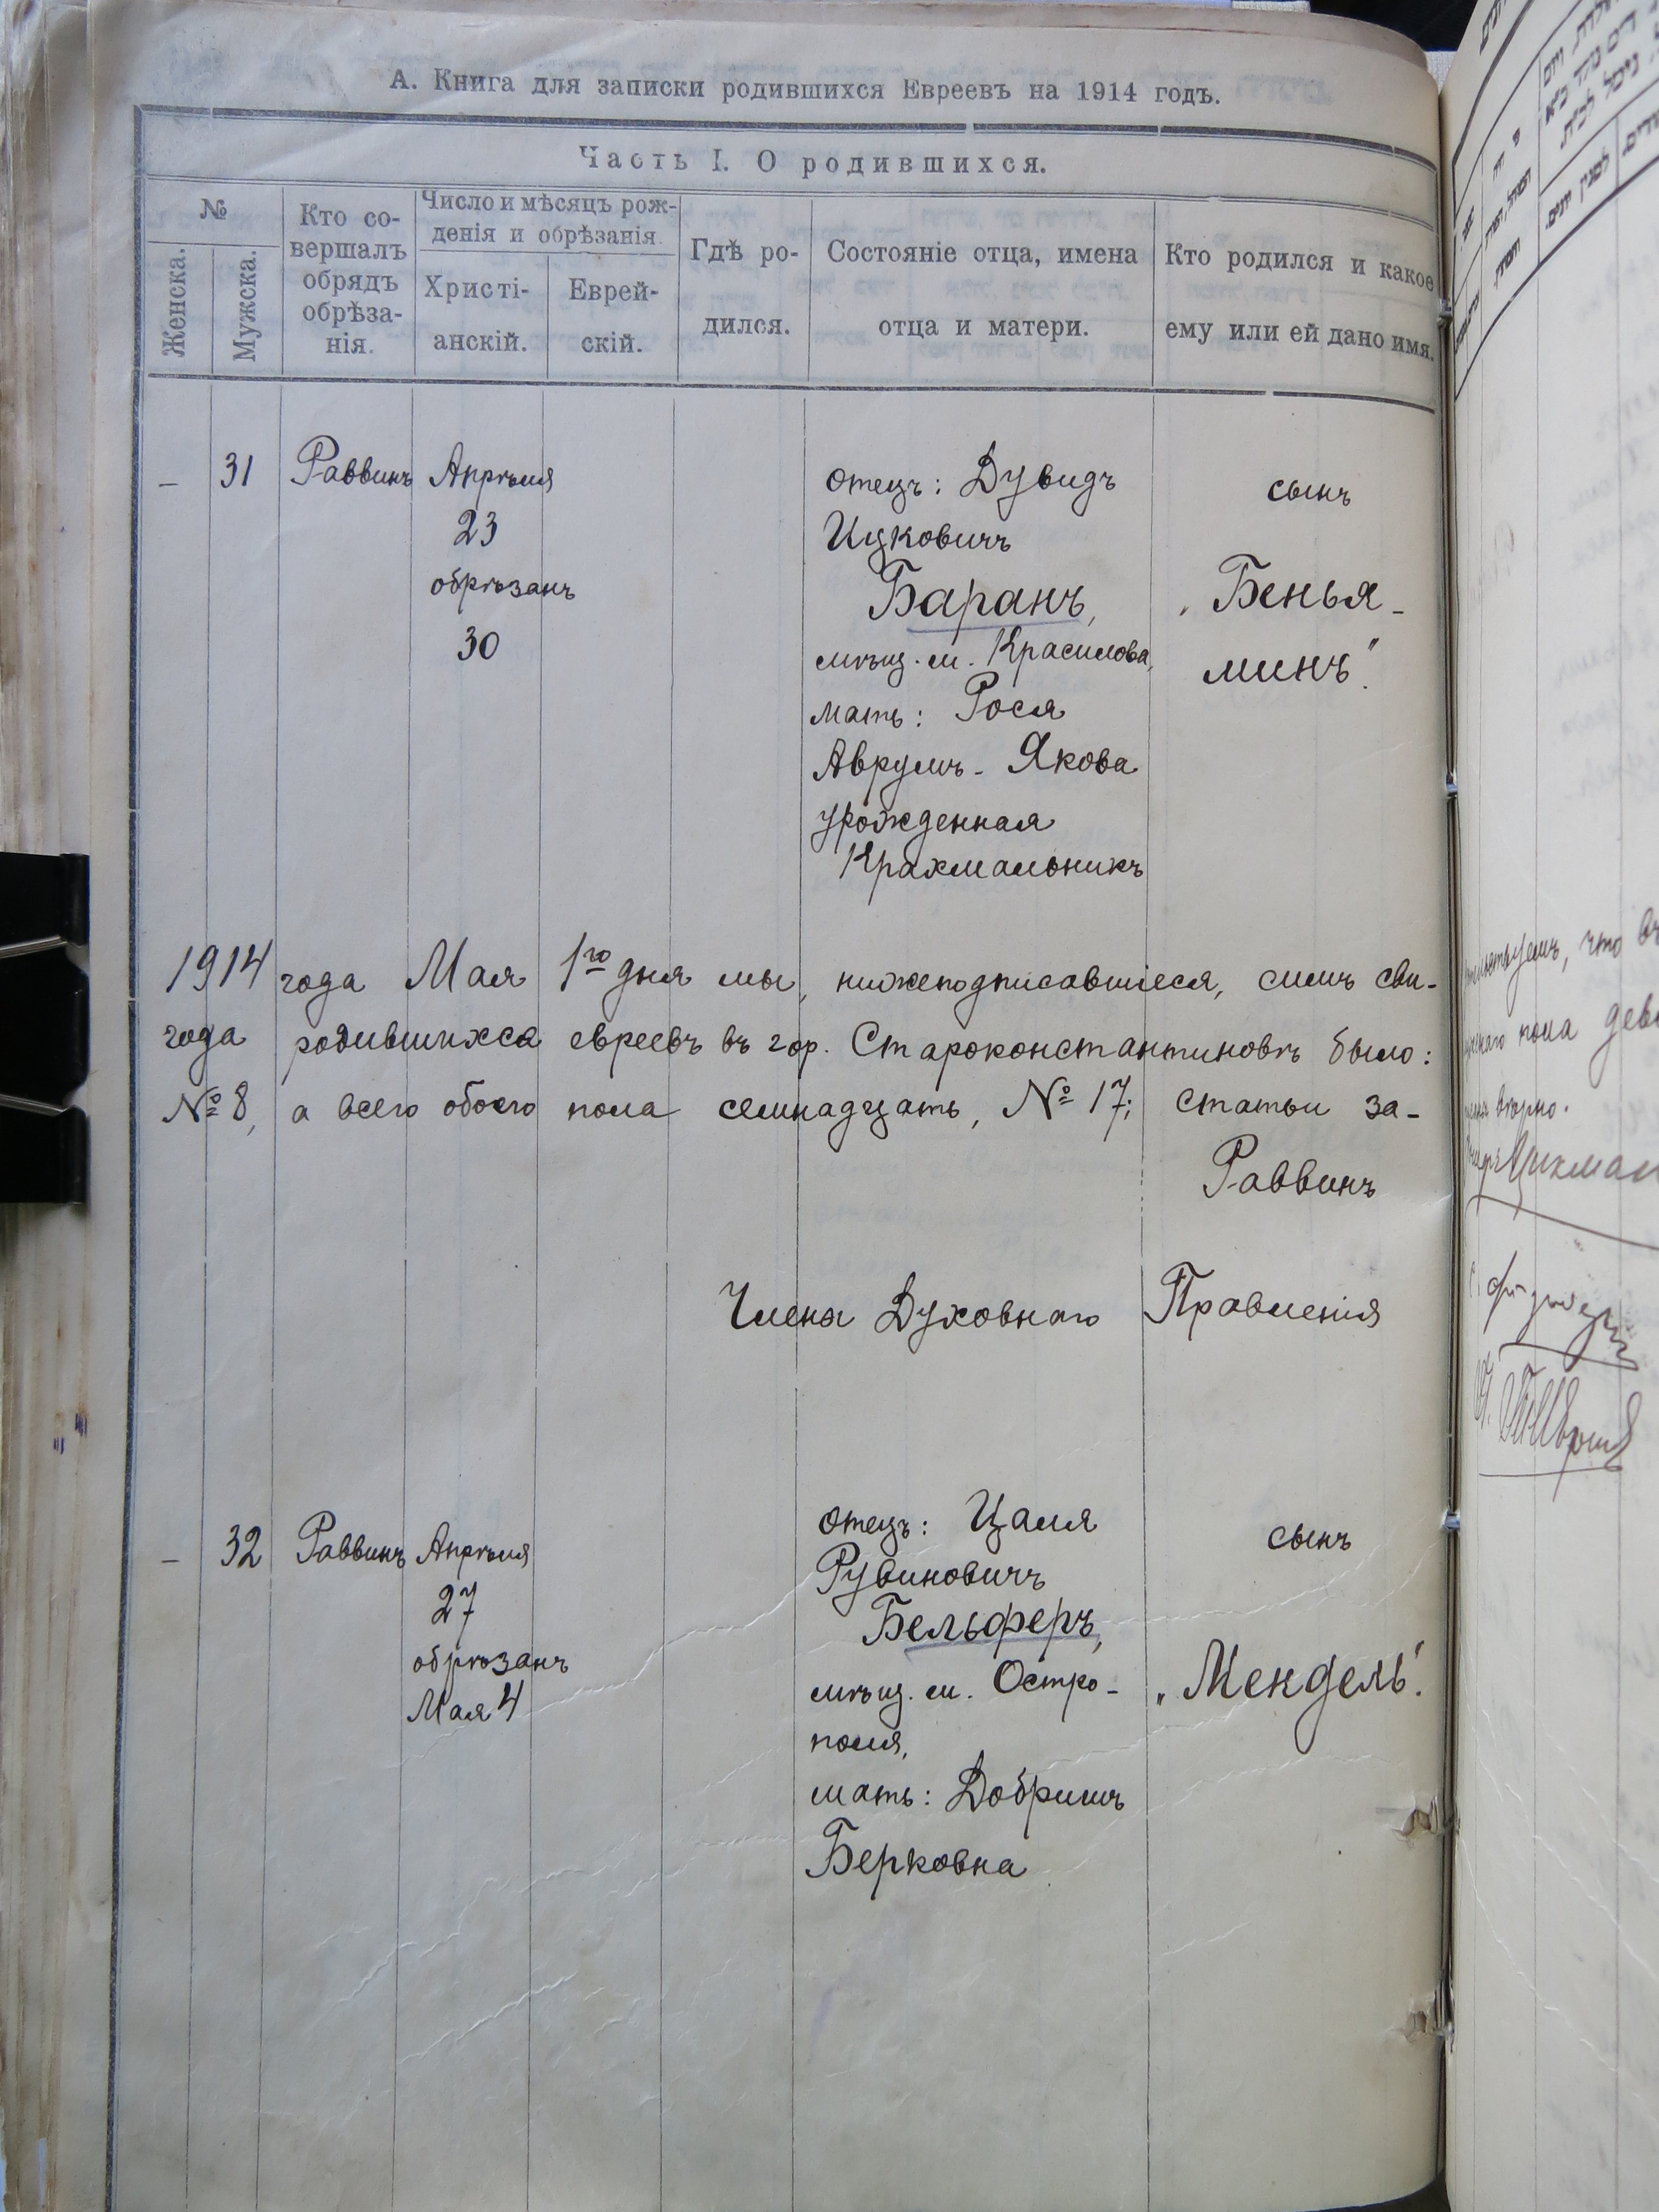 А. Книга для записки родившихся Евреевъ на 1914 годъ.
Часть I. О родившихся.
№
Женска.
Мужска.
Кто со-
вершалъ
обрядъ
обрѣза-
нія.
Число и мѣсяцъ рож-
денія и обрѣзанія.
Христі-
анскій.
Еврей-
скій.
Гдѣ ро-
дился.
Состояніе отца, имена
отца и матери.
Кто родился и какое
ему или ей дано имя.
– 31 Раввинъ Апрѣля
23
обрѣзанъ
30
отецъ: Дувидъ
Ицковичъ
Баранъ,
мѣщ. м. Красилова,
мать: Рося
Аврумъ-Якова
урожденная
Крахмальникъ
сынъ
„Бенья-
минъ“.
1914 года Мая 1го дня мы, нижеподписавшіеся, симъ сви-
года родившихса евреевъ въ гор. Староконстантиновѣ было:
№ 8, а всего обоего пола семнадцать, № 17; статьи за-
Раввинъ
Члена Духовнаго Правленія
– 32 Раввинъ Апрѣля
27
обрѣзанъ
Мая 4
отецъ: Цаля
Рувиновичъ
Бельферъ,
мѣщ. м. Остро-
поля,
мать: Добришъ
Берковна
сынъ
„Мендель“.
что въ
пола
вѣрно.